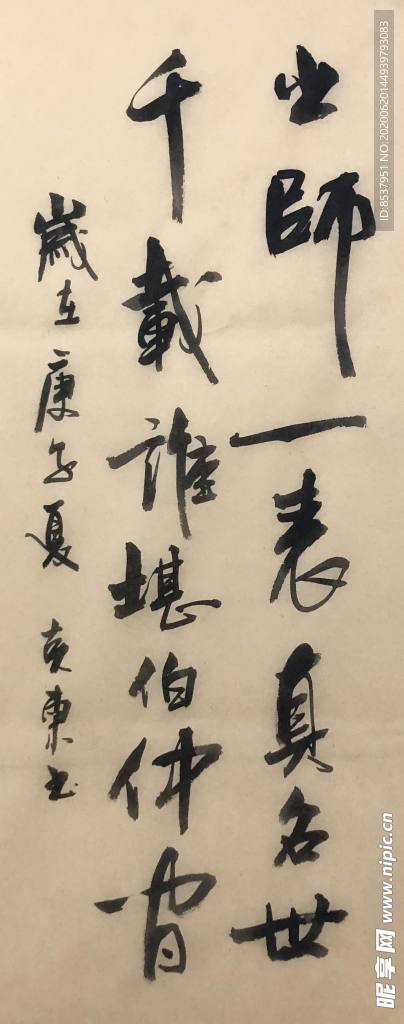 出師一表真名世
千載誰堪伯仲間
歲在庚子夏 東書
ID:8537951 NO:20200620144939793083
昵享网 www.nipic.cn